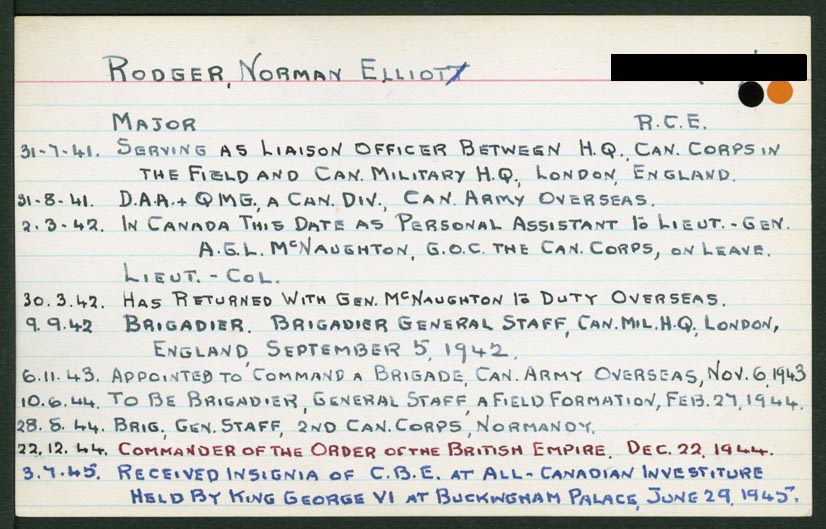 RODGER, NORMAN ELLIOTT
MAJOR R.C.E.
31-7-41. SERVING AS LIAISON OFFICER BETWEEN H.Q., CAN. CORPS IN
THE FIELD AND CAN. MILITARY H.Q., LONDON, ENGLAND.
31-8-41. D.A.A. + Q M G., A CAN. DIV., CAN. ARMY OVERSEAS.
2.3-42. IN CANADA THIS DATE AS PERSONAL ASSISTANT TO LIEUT.-GEN.
A.G.L. McNAUGHTON, G.O.C. THE CAN. CORPS, ON LEAVE.
LIEUT.-COL.
30.3.42. HAS RETURNED WITH GEN. McNAUGHTON TO DUTY OVERSEAS.
9.9.42 BRIGADIER. BRIGADIER GENERAL STAFF, CAN. MIL. H.Q., LONDON,
ENGLAND, SEPTEMBER 5, 1942.
6.11.43. APPOINTED TO COMMAND A BRIGADE, CAN. ARMY OVERSEAS, NOV. 6, 1943
10.6.44. TO BE BRIGADIER, GENERAL STAFF, A FIELD FORMATION, FEB. 27, 1944.
28.8.44. BRIG., GEN. STAFF, 2ND CAN. CORPS, NORMANDY.
22.12.44. COMMANDER OF THE ORDER OF THE BRITISH EMPIRE. DEC. 22, 1944.
3.7.45. RECEIVED INSIGNIA OF C.B.E. AT ALL-CANADIAN INVESTITURE
HELD BY KING GEORGE VI AT BUCKINGHAM PALACE, JUNE 29, 1945.